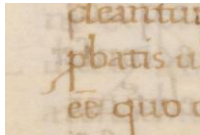 cleantur
ꝓbatis u
ee̅ quo c